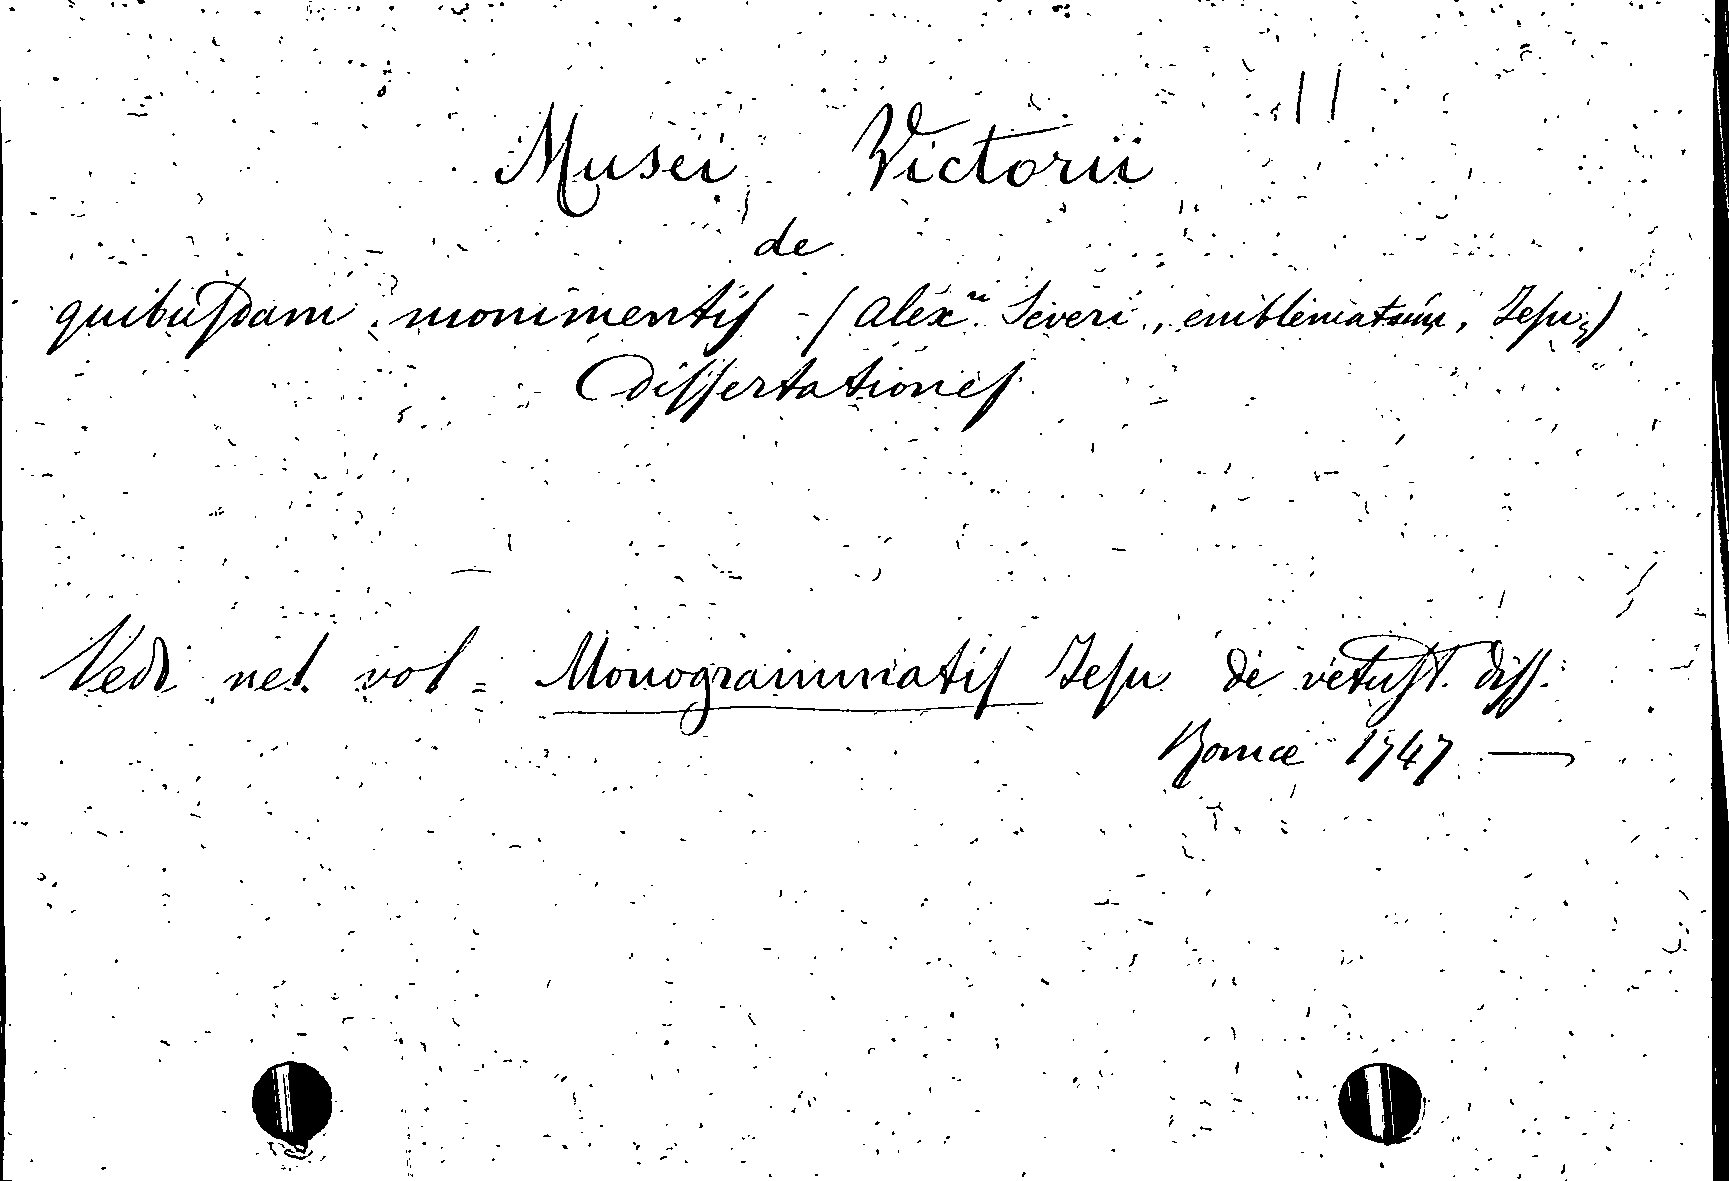 11
Musei Victorii
de
quibusdam monimentis - (Alex.ri Severi, emblematum, Jesu,)
Dissertationes
Vedi nel vol = Monogrammatis Jesu de vetust. diss.
Romae 1747 —